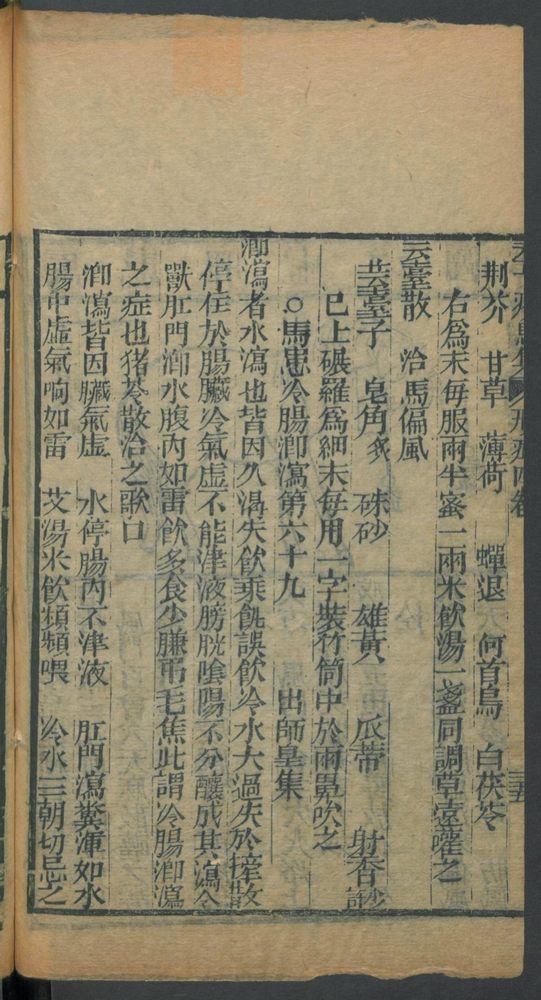 荆芥 甘草 薄荷 蟬退 何首烏 白茯苓
右爲末每服兩半蜜一兩米飲湯一盞同調草臺嚾之
云臺散 治馬偏風
芸臺子 皂角炙 硃砂 雄黃 瓜蒂 射香
已上碾羅爲細末每用一字裝竹筒中於兩鼻吹之
○馬患冷腸泖瀉第六十九 出師皇集
泖瀉者水瀉也皆因久渴失飲乘飢誤飲冷水大過失於牽散
停住於腸臟冷氣虛不能津液膀胱陰陽不分釀成其瀉令
獸肛門泖水腹內如雷飲多食少膁吊毛焦此謂冷腸泖瀉
之症也猪苓散治之歌曰
泖瀉皆因臟氣虛 水停腸內不津液 肛門瀉糞渾如水
腸中虛氣响如雷 艾湯米飲頻頻喂 冷水三朝切忌之